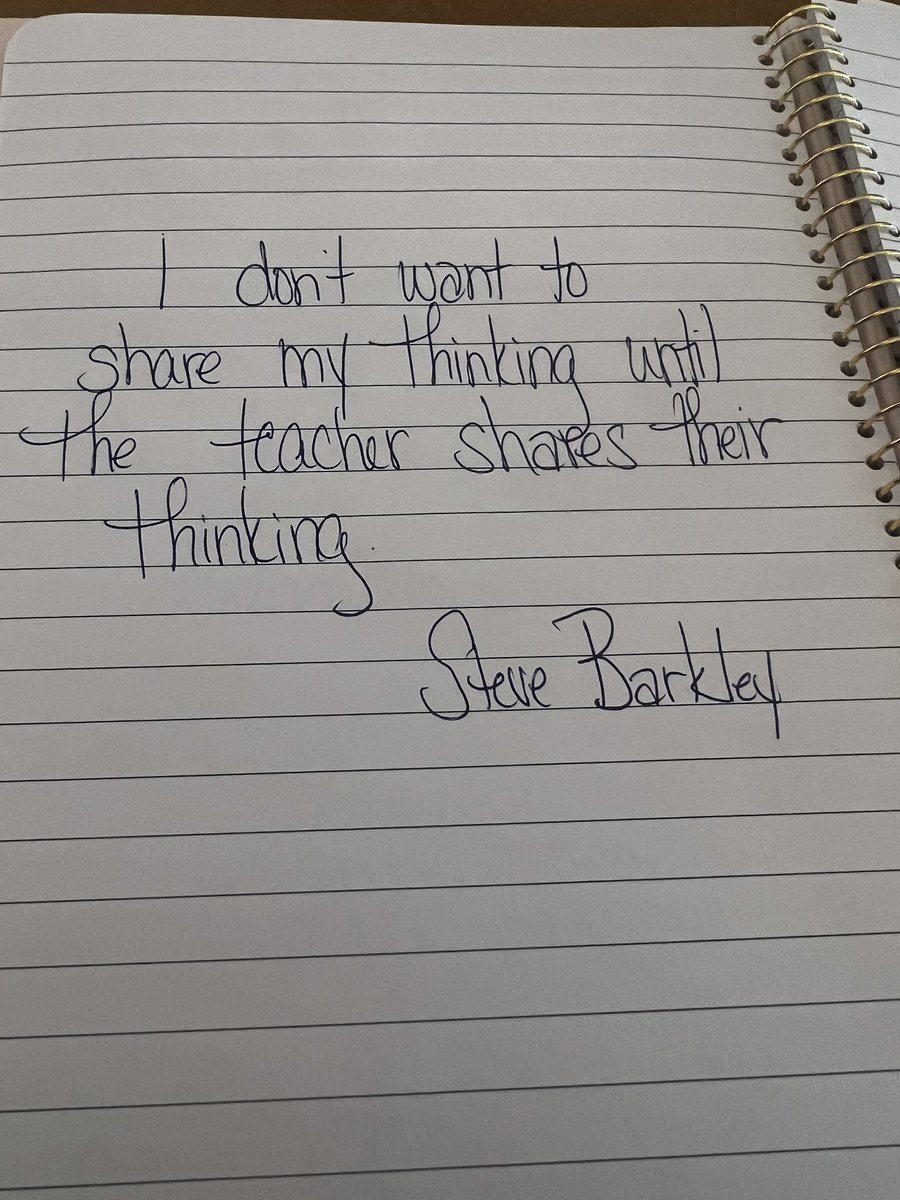 I don't want to
share my thinking until
the teacher shares their
thinking.
Steve Barkley